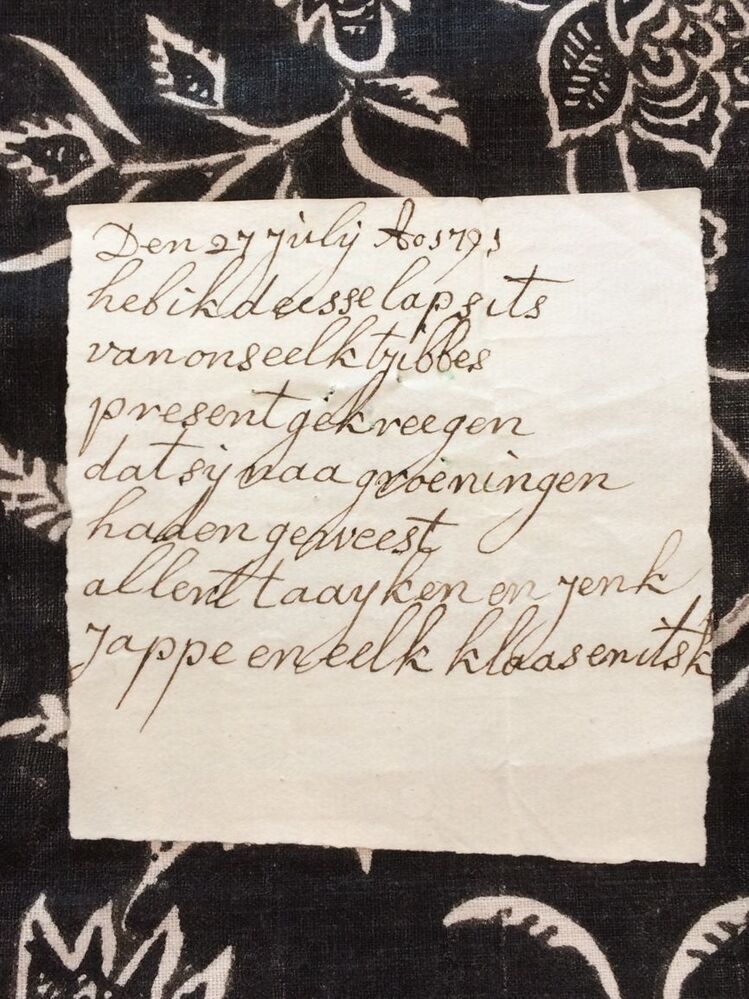 Den 27 july Ao 1791
heb ik deesse lap sits
van ons eelk tjibbes
present gekreegen
dat sij naa groeningen
haden geweest
allent taayken en jenk
Jappe en eelk klaas en itsk